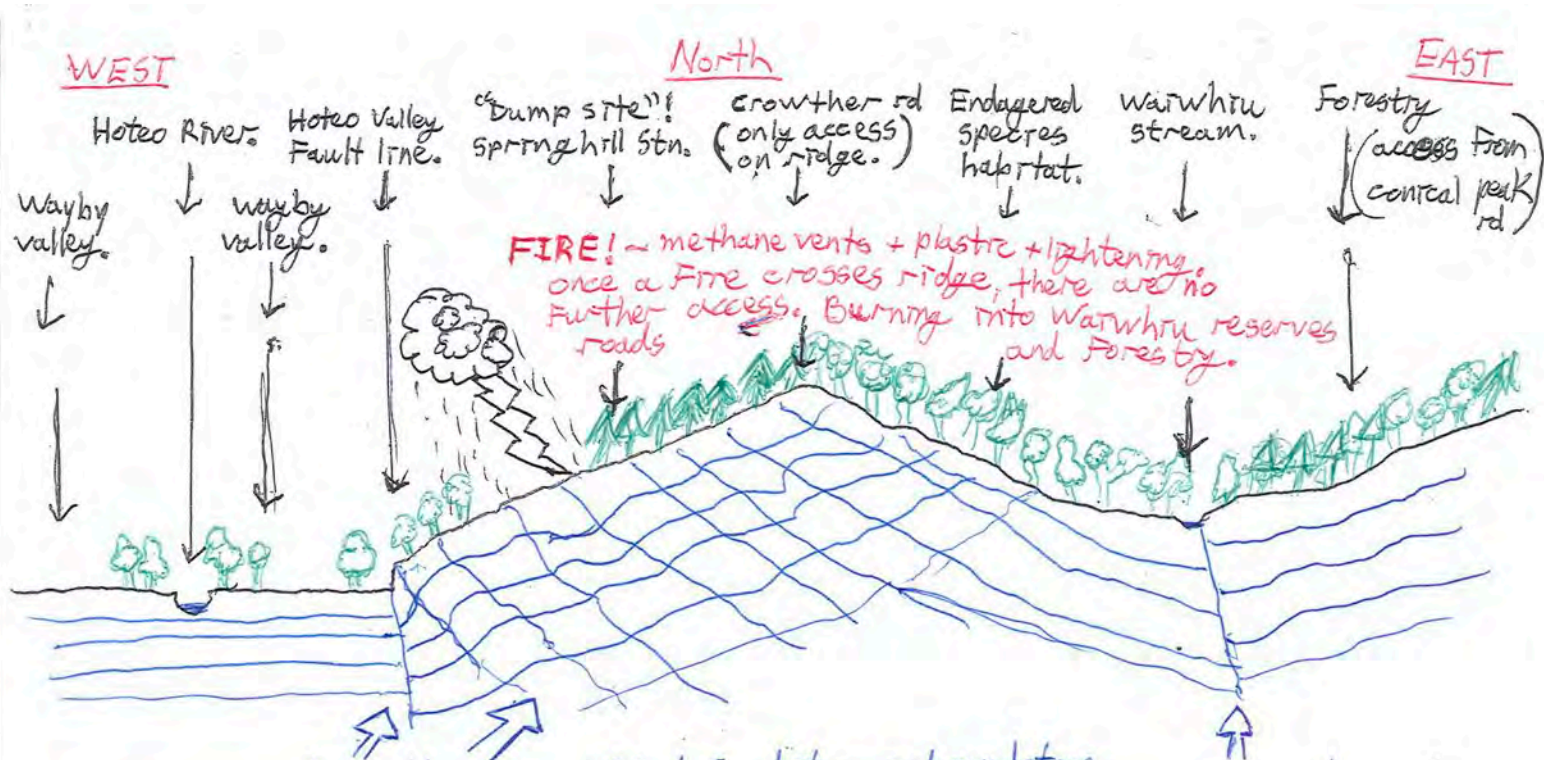 WEST
North
EAST
Hoteo River.
Hoteo Valley
Fault line.
"Dump site"!
Springhill Stn.
crowther rd
(only access)
(on ridge.)
Endagered
species
habitat.
Waiwhiu
stream.
Forestry
(access From
conical peak
rd)
Wayby
valley.
wayby
valley.
FIRE! ~ methane vents + plastic + lightening.
once a Fire crosses ridge, there are no
Further access. Burning into Waiwhiu reserves
roads
and Forestry.